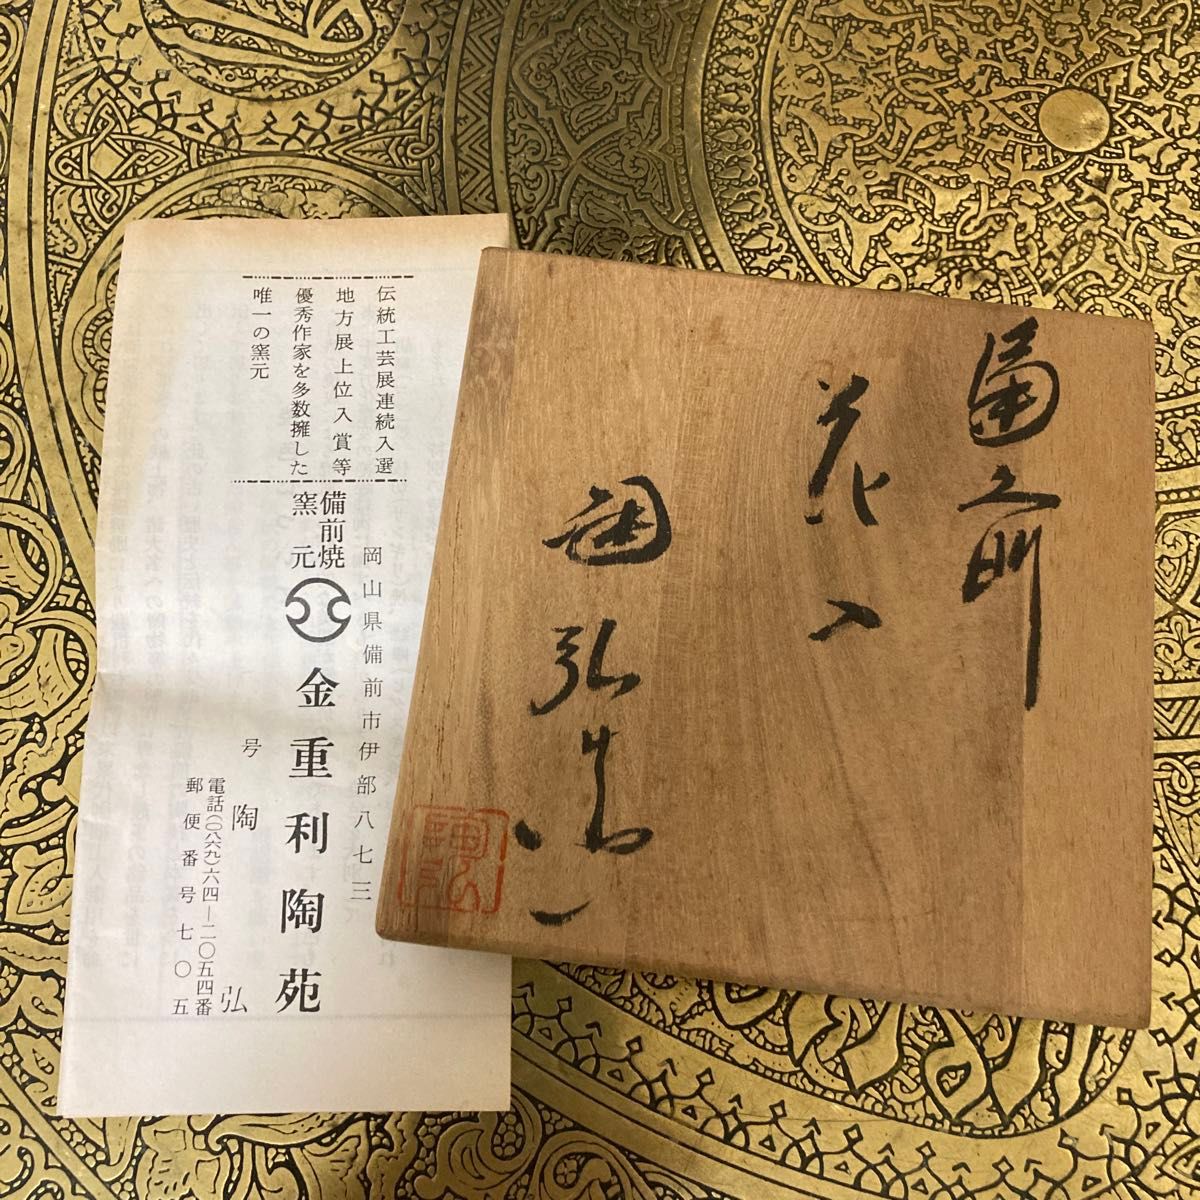 伝統工芸展連続入選
地方展上位入賞等
優秀作家を多数擁した
唯一の窯元
岡山県備前市伊部八七三
備前焼
窯元
金重利陶苑
号 陶弘
電話(〇八六九)六四―二〇五四番
郵便番号七〇五
備前
花入
陶弘造
陶弘